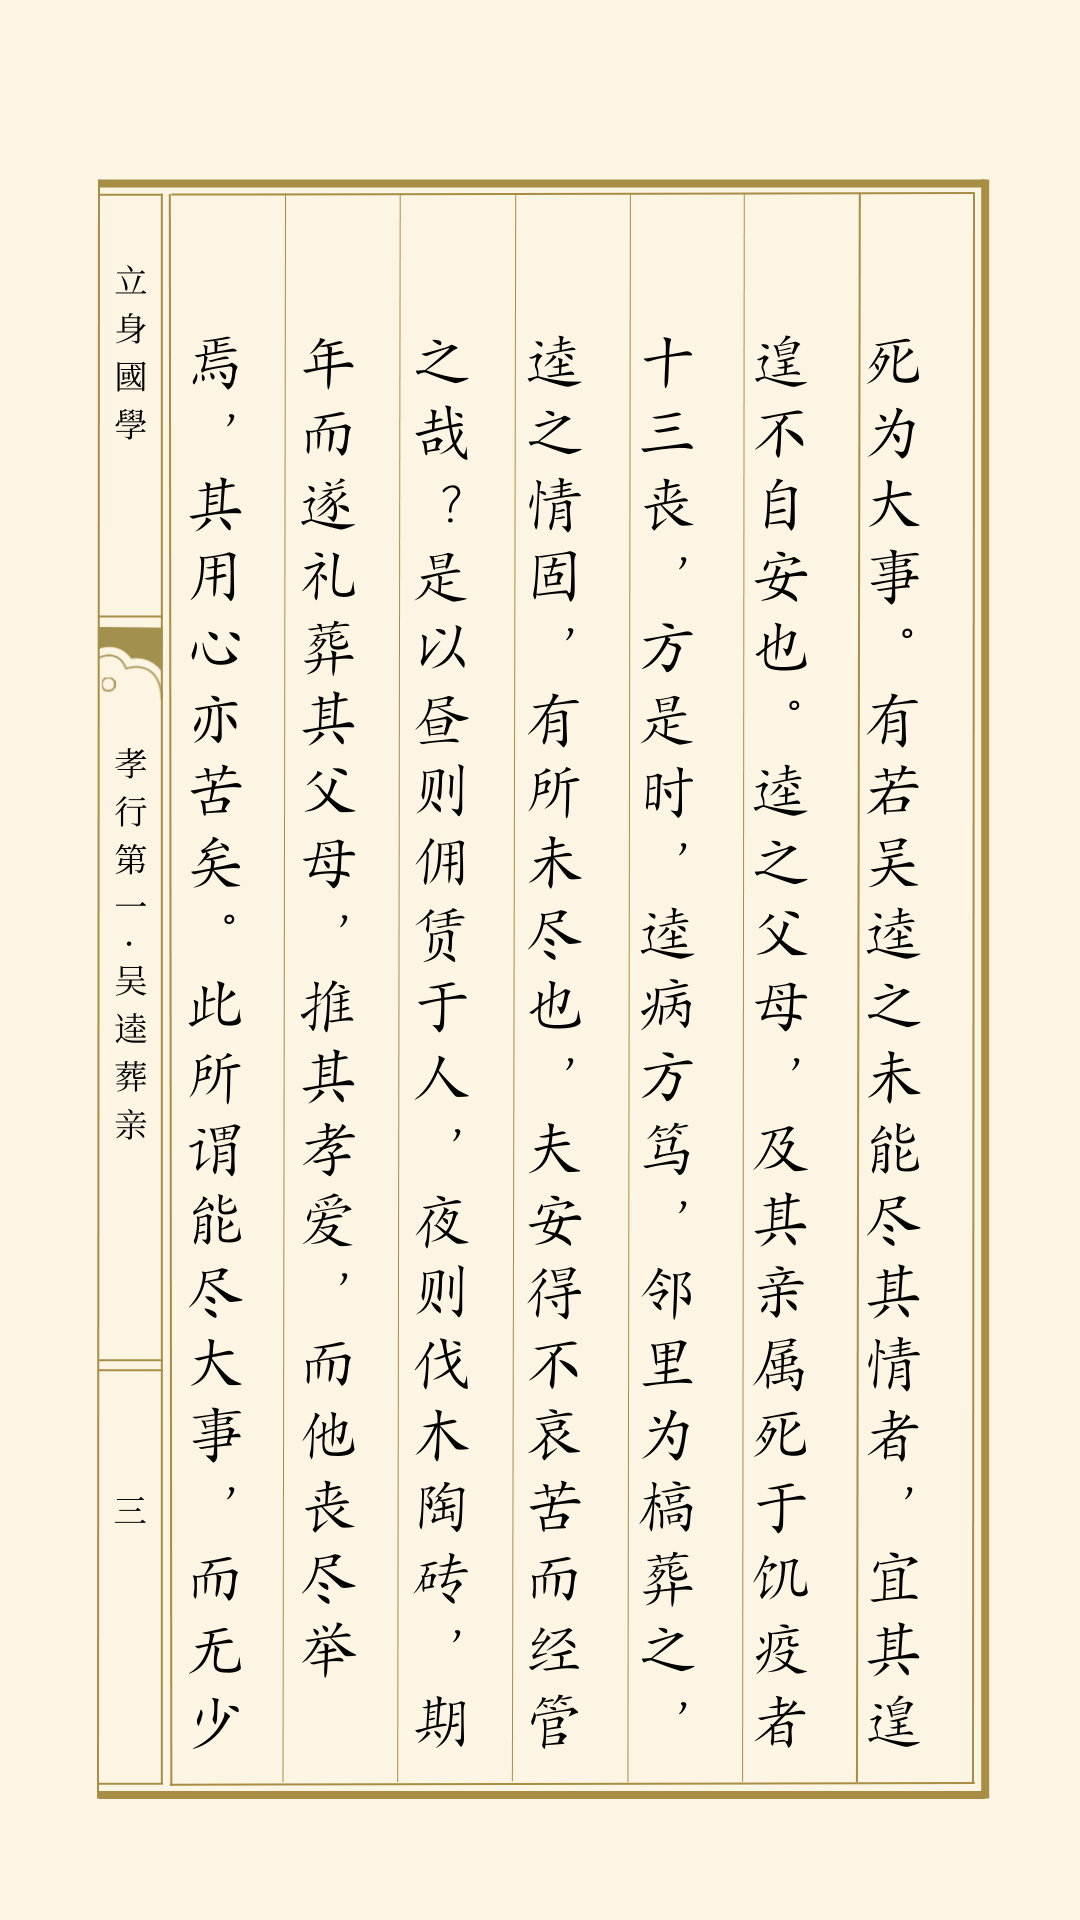 死为大事。有若吴逵之未能尽其情者，宜其遑
遑不自安也。逵之父母，及其亲属死于饥疫者
十三丧，方是时，逵病方笃，邻里为槁葬之，
逵之情固，有所未尽也，夫安得不哀苦而经管
之哉？是以昼则佣赁于人，夜则伐木陶砖，期
年而遂礼葬其父母，推其孝爱，而他丧尽举
焉，其用心亦苦矣。此所谓能尽大事，而无少
立身國學
孝行第一·吴逵葬亲
三